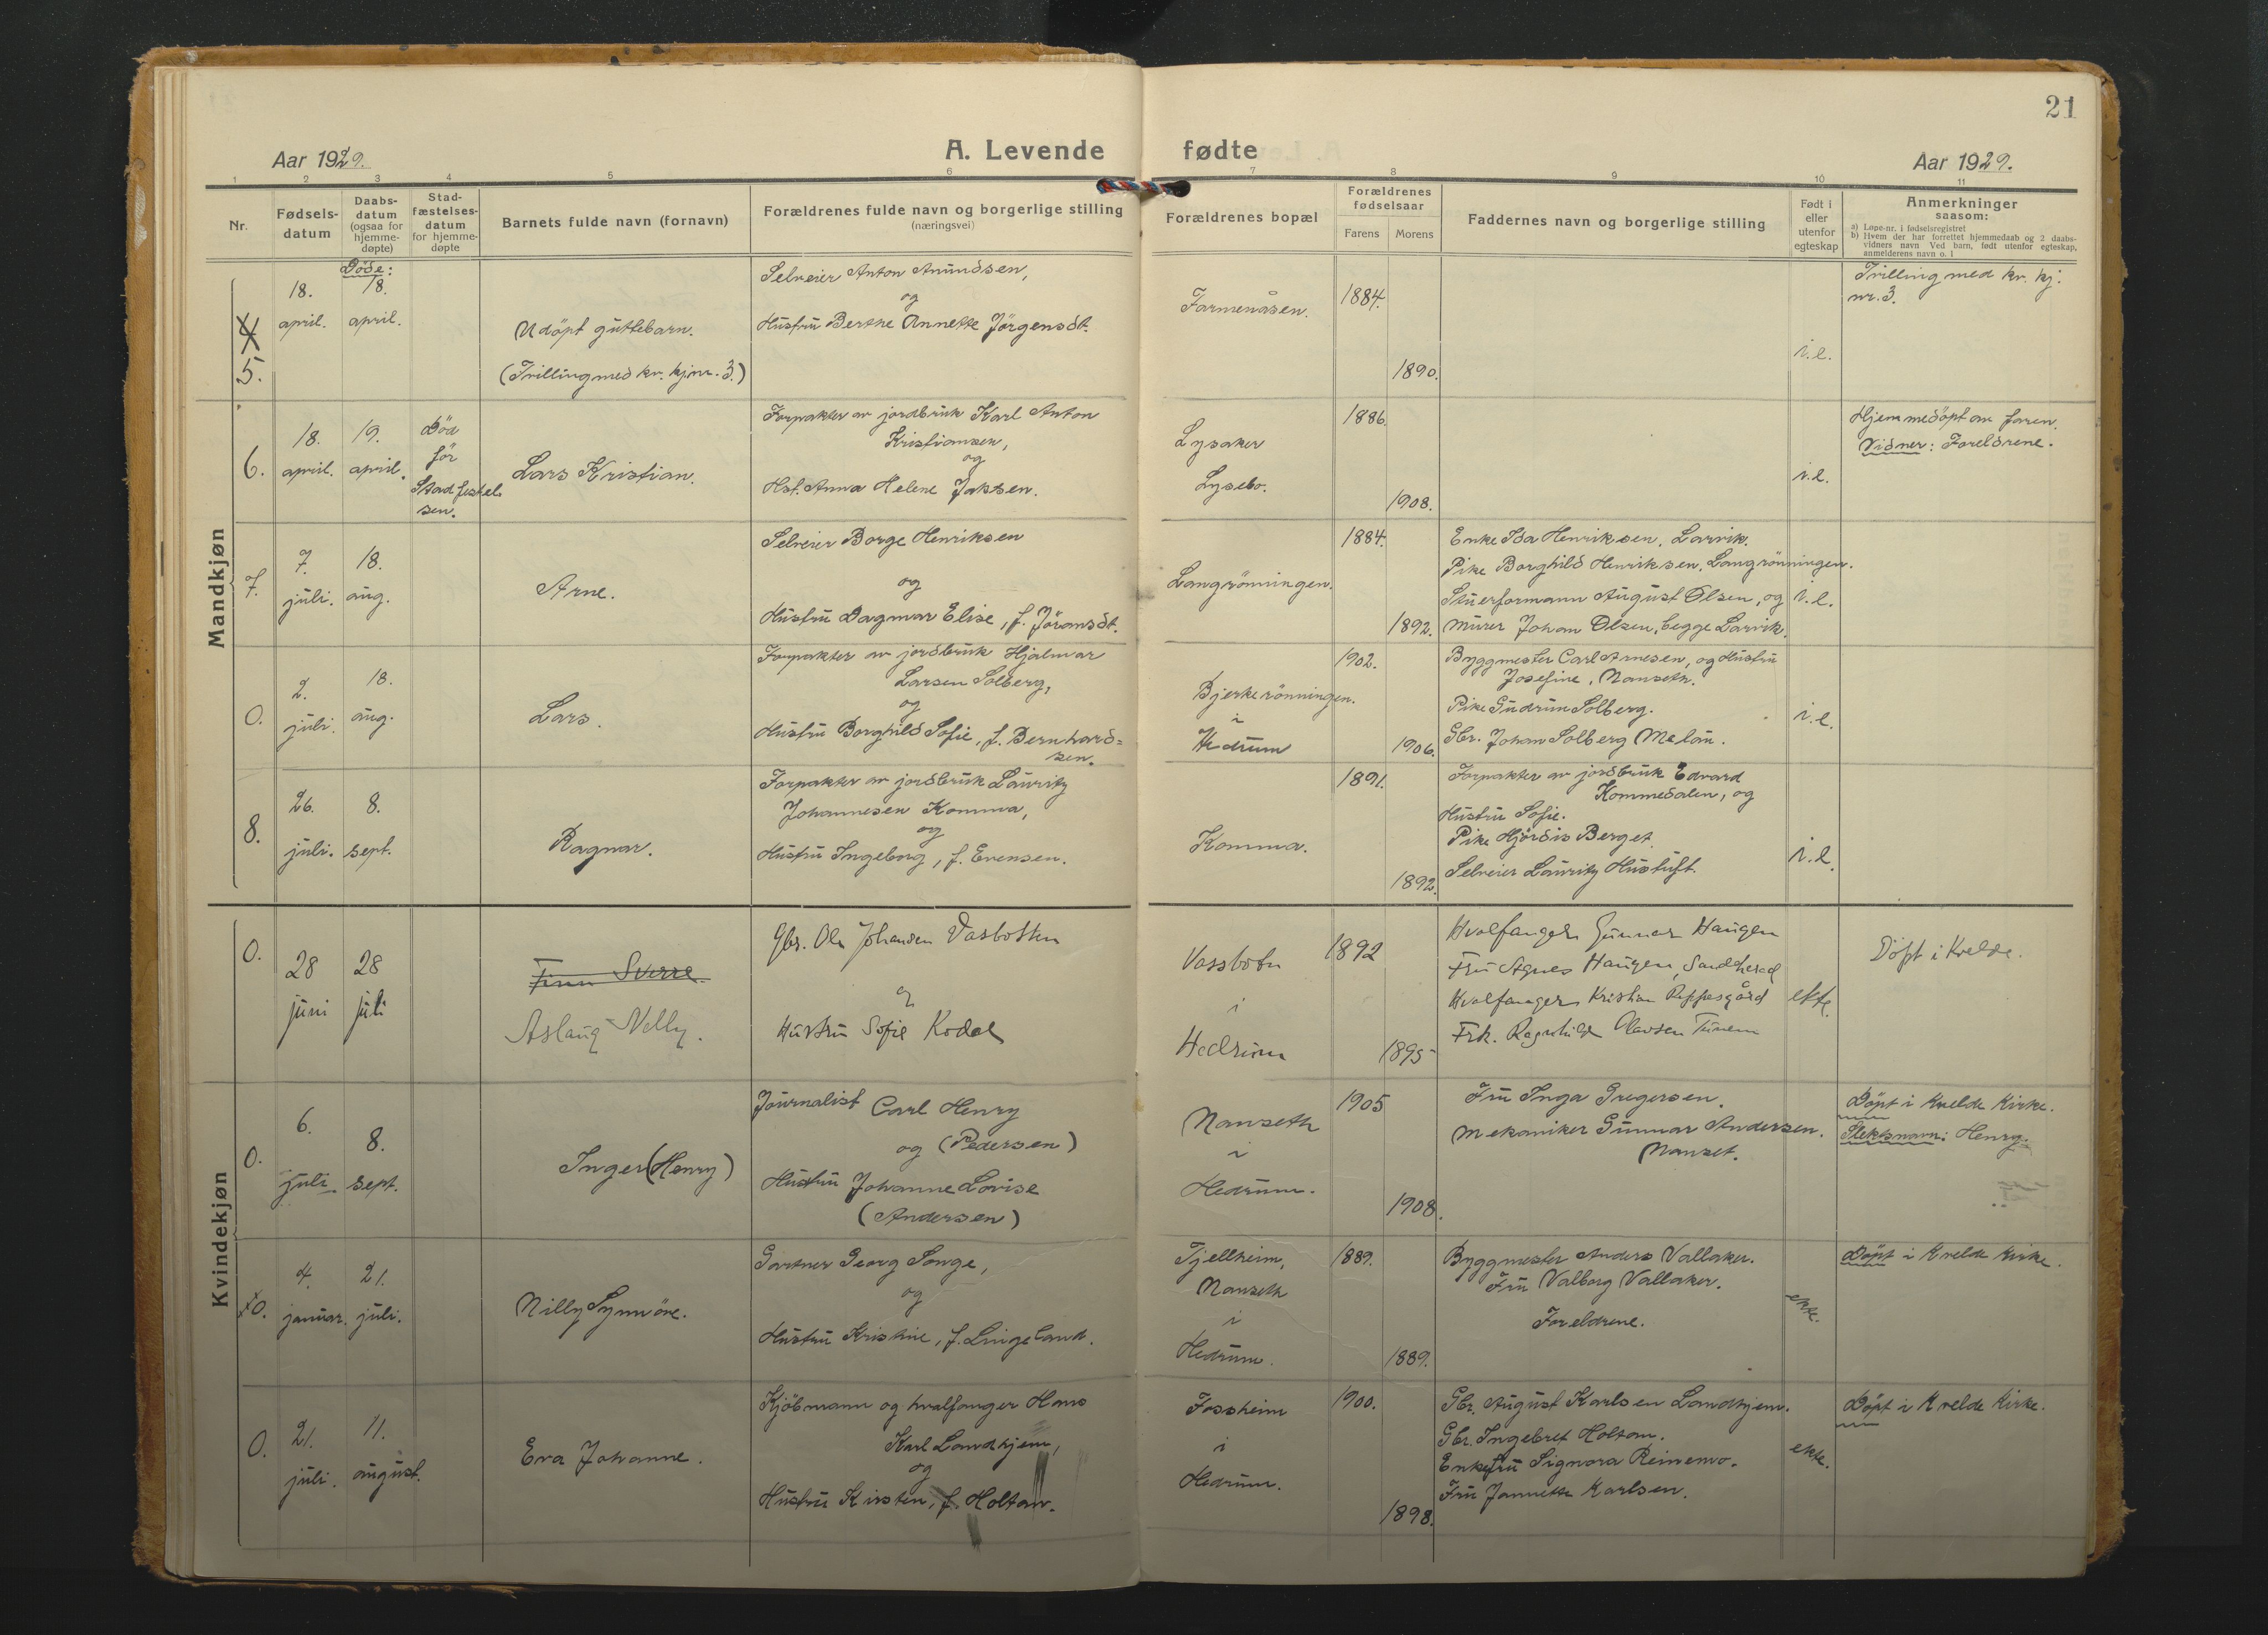 21
Aar 1929.
A. Levende fødte
Aar 1929.
1 2 3 4 5 6 7 8 9 10 11
Nr.
Fødsels-
datum
Daabs-
datum
(ogsaa for
hjemme-
døpte)
Stad-
fæstelses-
datum
for hjemme-
døpte
Barnets fulde navn (fornavn)
Forældrenes fulde navn og borgerlige stilling
(næringsvei)
Forældrenes bopæl
Forældrenes
fødselsaar
Farens Morens
Faddernes navn og borgerlige stilling
Født i
eller
utenfor
egteskap
Anmerkninger
saasom:
a) Løpe-nr. i fødselsregistret
b) Hvem der har forrettet hjemmedaab og 2 daabs-
vidners navn Ved barn, født utenfor egteskap,
anmelderens navn o. l
Mandkjøn
4
5.
18.
april.
Döde:
18.
april.
Udöpt guttebarn.
(Trilling med kr. kj nr. 3.)
Selveier Anton Amundsen,
og
Hustru Berthe Annette Jörgensdt.
Farmenåsen.
1884.
1890.
i.e.
Trilling med kr. kj.
nr. 3.
6.
18.
april.
19.
april.
Död
för
Stadfestel
sen.
Lars Kristian.
Forpakter av jordbruk Karl Anton
Kristiansen,
og
Hst. Anna Helene Jaksen.
Lysaker
Lysebo.
1886.
1908.
i.e.
Hjemmedöpt av faren.
Vidner: Foreldrene.
7.
7.
juli.
18.
aug.
Arne.
Selveier Borge Henriksen
og
Hustru Dagmar Elise, f. Jöransdt.
Langrönningen.
1884.
1892.
Enke Ida Henriksen, Larvik.
Pike Borghild Henriksen, Langrönningen.
Stuerformann August Olsen, og
Murer Johan Olsen, begge Larvik.
i.e.
0.
2.
juli.
18.
aug.
Lars.
Forpakter av jordbruk Hjalmar
Larsen Solberg,
og
Hustru Borghild Sofie, f. Bernhard=
sen.
Bjerkerönningen.
i
Hedrum
1902.
1906.
Byggmester Carl Arnesen, og Hustru
Josefine, Nanseth.
Pike Gudrun Solberg.
Gbr. Johan Solberg Melau.
i.e.
8.
26.
juli.
8.
sept.
Ragnar.
Forpakter av jordbruk Lauritz
Johannesen Komma,
og
Hustru Ingeborg, f. Evensen.
Komma.
1891.
1892.
Forpakter av jordbruk Edvard
Kommedalen, og
Hustru Sofie.
Pike Hjördis Berget.
Selveier Lauritz Hustuft.
i.e.
Kvindekjøn
0.
28
juni
28
juli
Finn Sverre
Aslaug Nelly.
Gbr. Ole Johansen Vasbotten
og
Hustru Sofie Kodal
Vassbotn
i
Hedrum
1892
1895
Hvalfanger Gunnar Haugen
Fru Agnes Haugen, Sandeherad
Hvalfanger Kristian Røppesgård
Frk. Ragnhild Olavsen
ekte.
Döpt i Kvelde.
0.
6.
juli
8.
sept.
Inger (Henry)
Journalist Carl Henry
og (Pedersen)
Hustru Johanne Lovise
(Andersen)
Nanseth
i
Hedrum.
1905
1908.
Fru Inga Gregersen.
Mekaniker Gunnar Andersen.
Nanset.
Döpt i Kvelde Kirke.
Slektsnavn: Henry.
0.
4.
januar.
21.
juli.
Nilly Synnöve.
Gartner Georg Songe,
og
Hustru Kristine, f. Lingeland.
Fjellheim,
Nanseth
i
Hedrum.
1889.
1889.
Byggmester Anders Vallaker.
Fru Valborg Vallaker.
Foreldrene.
ekte.
Döpt i Kvelde Kirke.
0.
21.
juli.
11.
august.
Eva Johanne.
Kjöbmann og hvalfanger Hans
Karl Landhjem,
og
Hustru Kirsten, f. Holtan.
Fossheim
i
Hedrum.
1900.
1898.
Gbr. August Karlsen Landhjem.
Gbr. Ingebret Holtan.
Enkefru Signora Reinemo.
Fru Jannette Karlsen.
ekte.
Döpt i Kvelde Kirke.